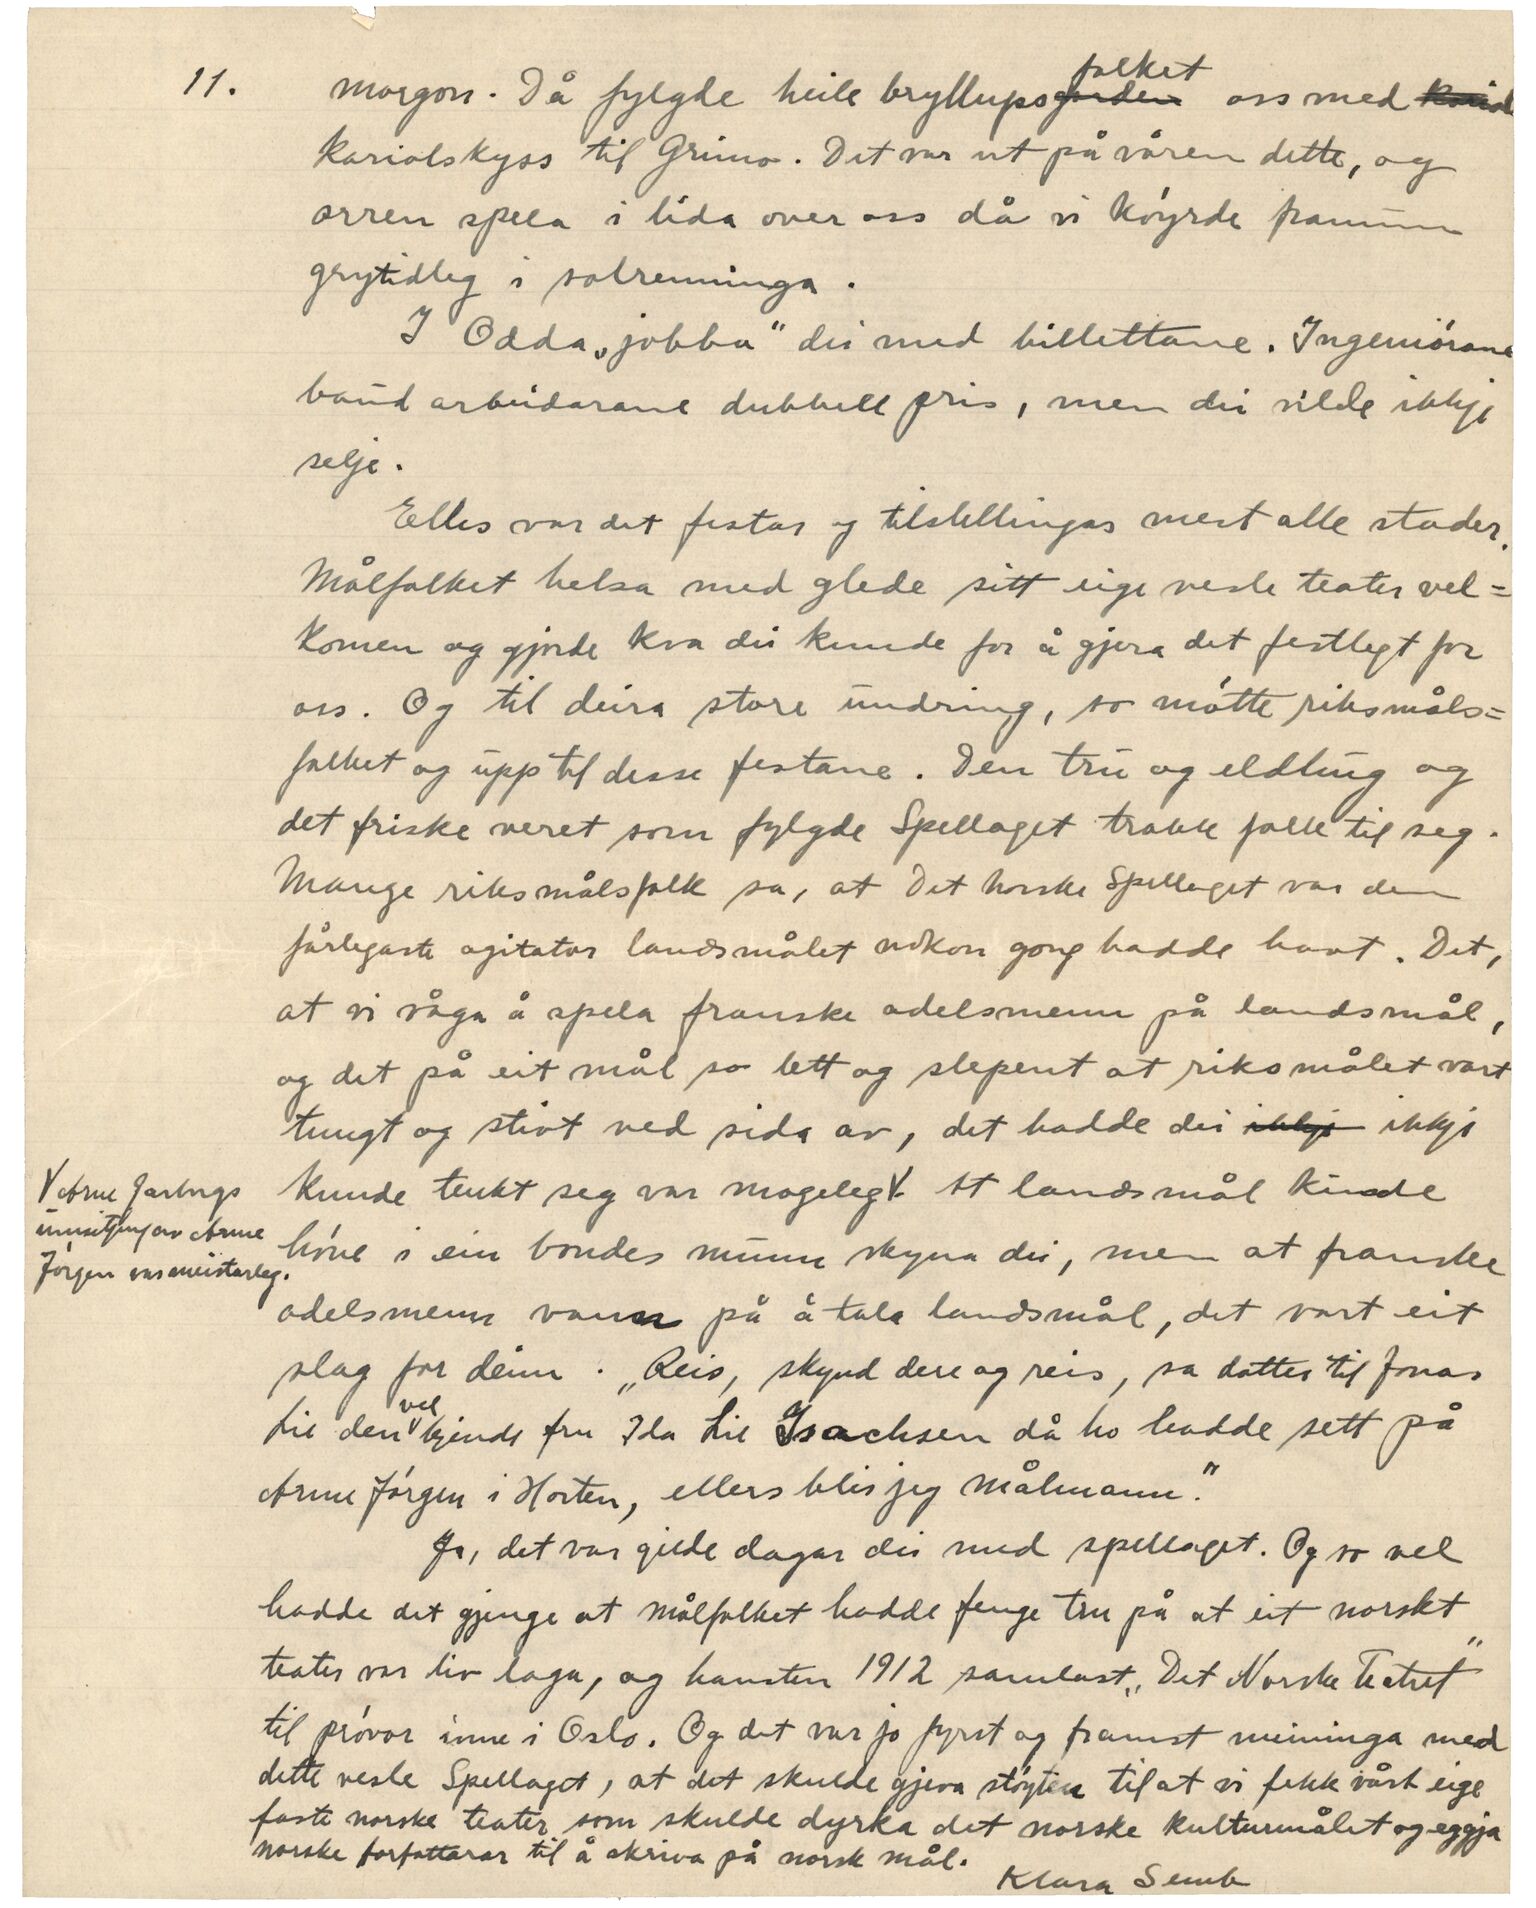 11.
morgon. Då fylgde heile bryllupsgarden folket oss med kariol
kariolskyss til Grimo. Det var ut på våren dette, og
orren spela i lida over oss då vi köyrde framum
grytidleg i solrenninga.
I Odda „jobba" dei med billettane. Ingeniörane
baud arbeidarane dubbell pris, men dei vilde ikkje
selje.
Elles var det festar og tilstellingar mest alle stader.
Målfolket helsa med glede sitt eige vesle teater vel=
komen og gjorde kva dei kunde for å gjera det festlegt for
oss. Og til deira store undring, so mötte riksmåls=
folket og upp til desse festane. Den tru og eldhug og
det friske veret som fylgde Spellaget trakk folk til seg.
Mange riksmålsfolk sa, at Det Norske Spellaget var den
fårlegaste agitator landsmålet nokon gong hadde havt. Det,
at vi våga å spela franske adelsmenn på landsmål,
og det på eit mål so lett og slepent at riksmålet vart
tungt og stivt ved sida av, det hadde dei ikkje ikkje
kunde tenkt seg var mogeleg. At landsmål kunde
V Arne Garborgs
umsetjing av Arme
Jörgen var meistarleg.
höve i ein bondes munn skyna dei, men at franske
adelsmenn vann på å tala landsmål, det vart eit
slag for deim. „Reis, skynd dere og reis, sa dotter til Jonas
Lie den vel kjende fru Ida Lie Isachsen då ho hadde sett på
Arme Jörgen i Horten, ellers blir jeg målmann."
Ja, det var gilde dagar dei med spellaget. Og so vel
hadde det gjenge at målfolket hadde fenge tru på at eit norskt
teater var liv laga, og hausten 1912 samlast „Det Norske Teatret"
til prövor inne i Oslo. Og det var jo fyrst og framst meininga med
dette vesle Spellaget, at det skulde gjeva stöyten til at vi fekk vårt eige
faste norske teater som skulde dyrka det norske kulturmålet og eggja
norske forfattarar til å skriva på norsk mål.
Klara Semb